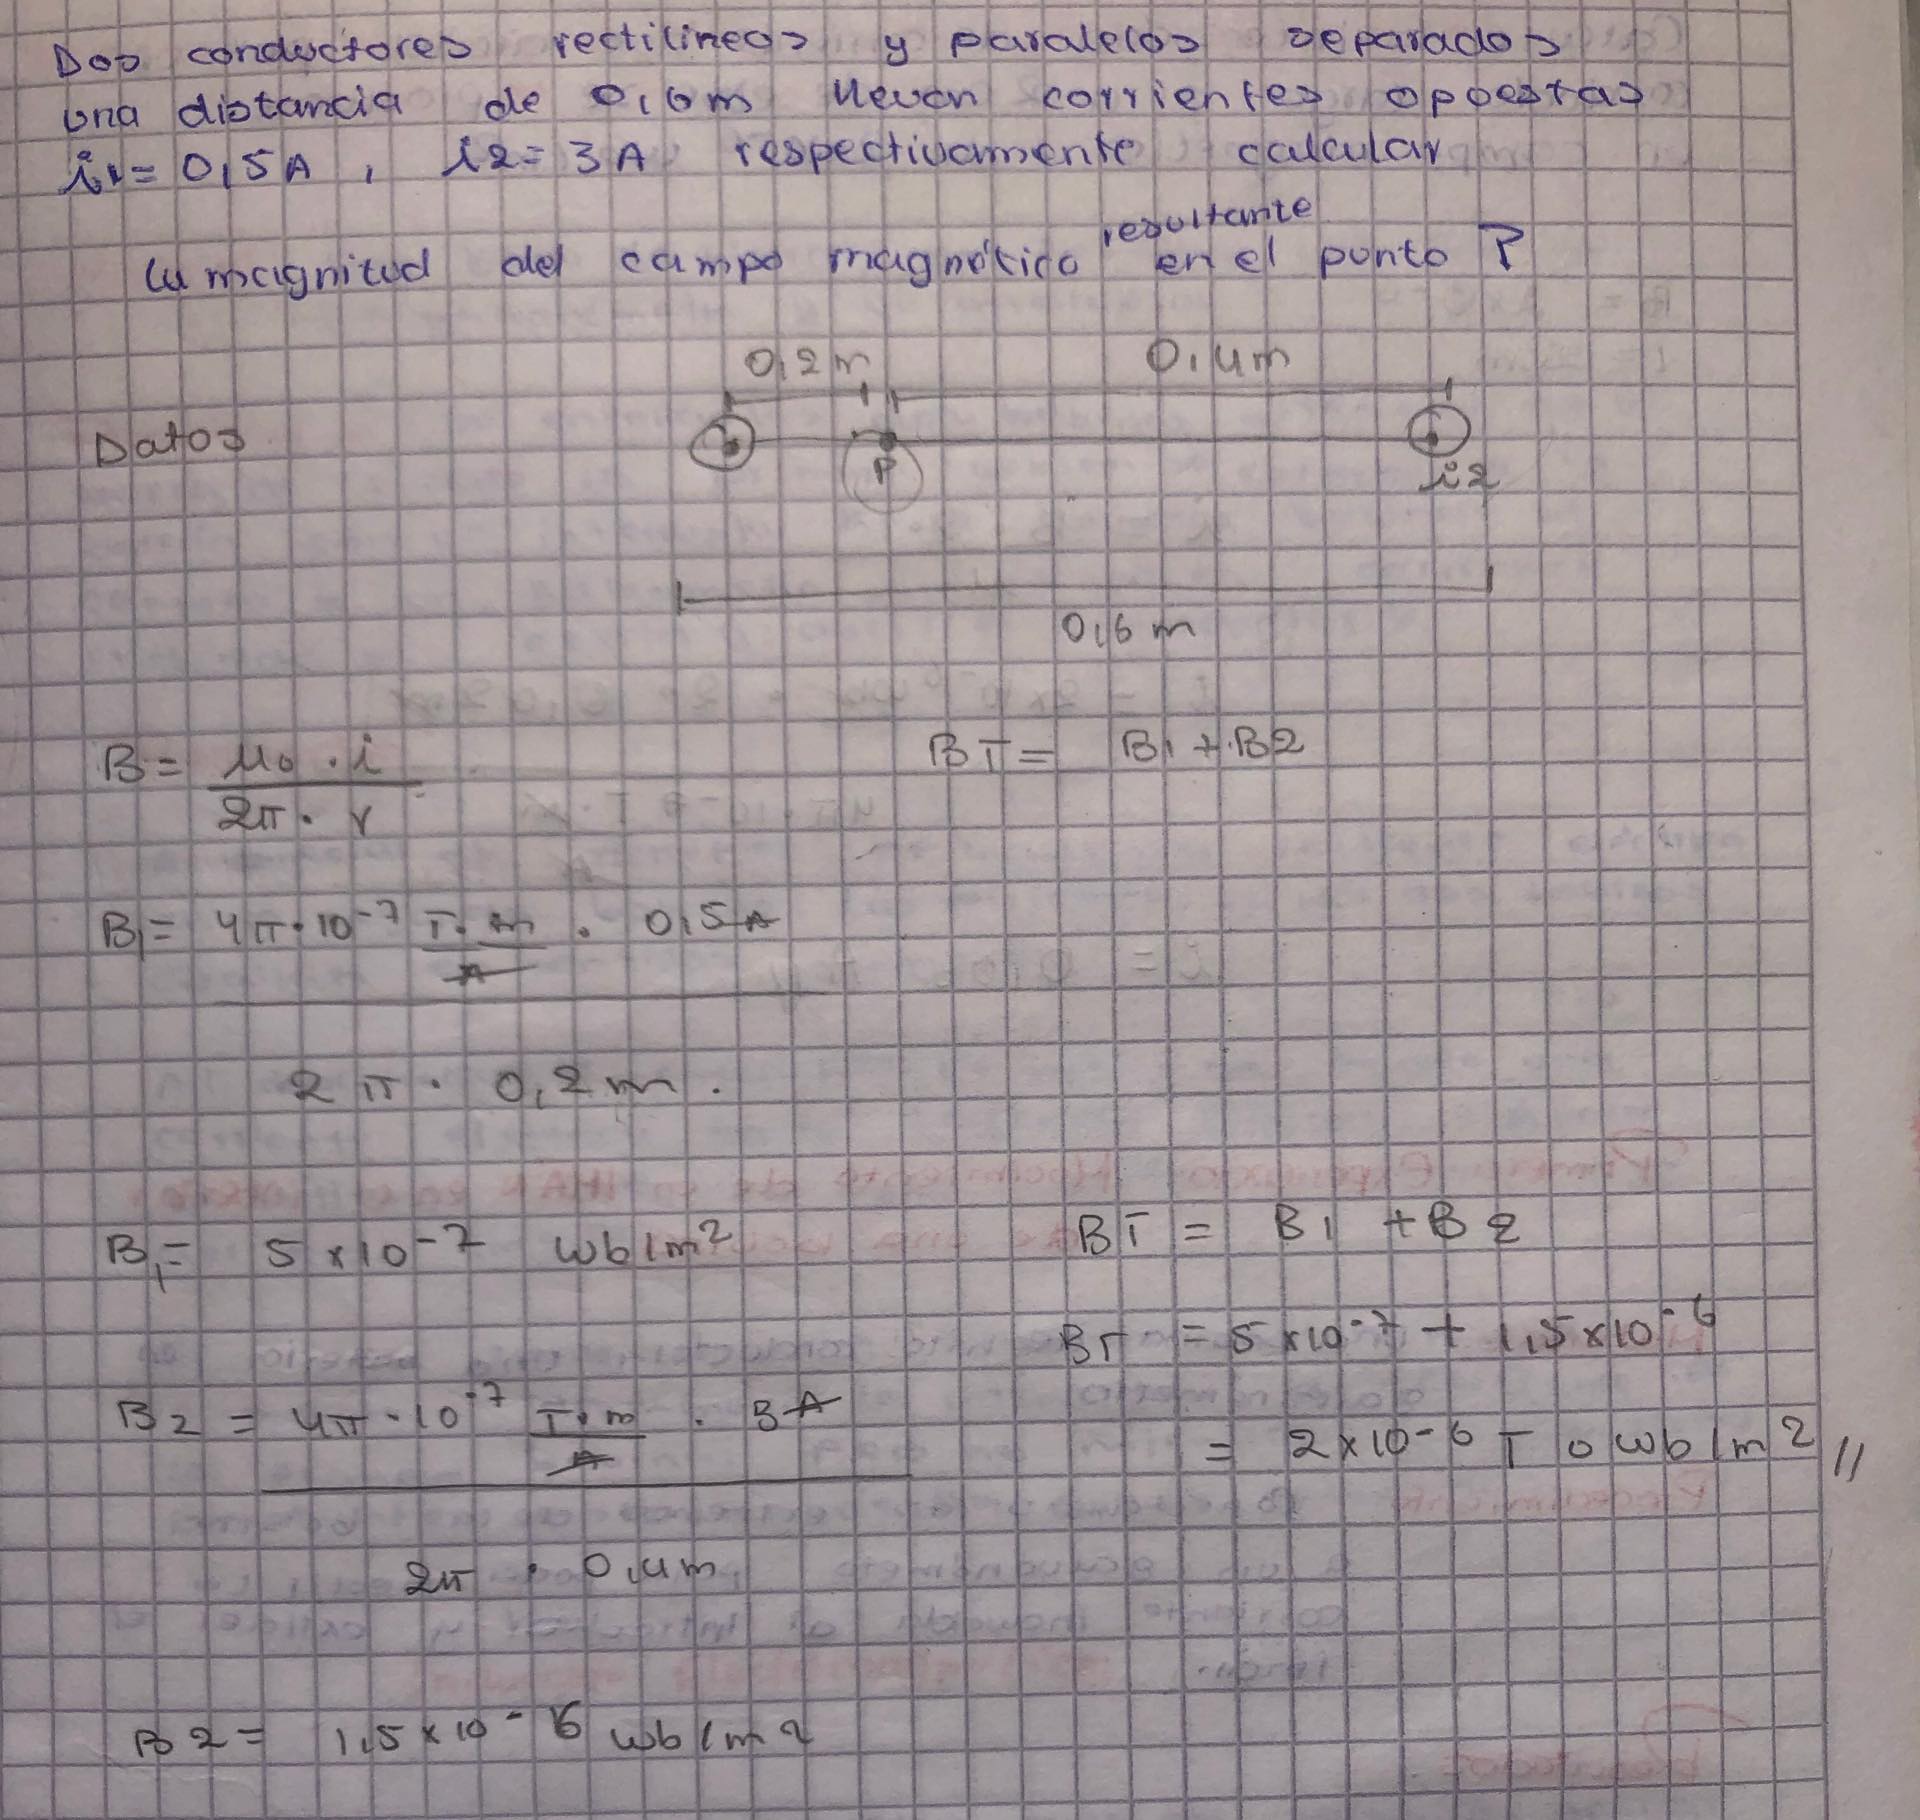 Dos conductores rectilineos y paralelos separados
una distancia de 0,6m llevan corrientes opuestas
i1= 0,5A , i2= 3A respectivamente calcular
resultante
la magnitud del campo magnético en el punto P
0,2m 0,4m
Datos
P
i2
0,6 m
B= μ0 . i
2π . r
BT= B1 + B2
B1= 4π·10-7 T.m . 0,5A
A
2π . 0,2m.
B1= 5 x10-7 wb/m2
BT = B1 + B2
BT = 5 x10-7 + 1,5x10-6
B2 = 4π·10-7 T.m . 3A
A
= 2x10-6 T o wb/m2 //
2π . 0,4m
B2= 1,5x10-6 wb/m2